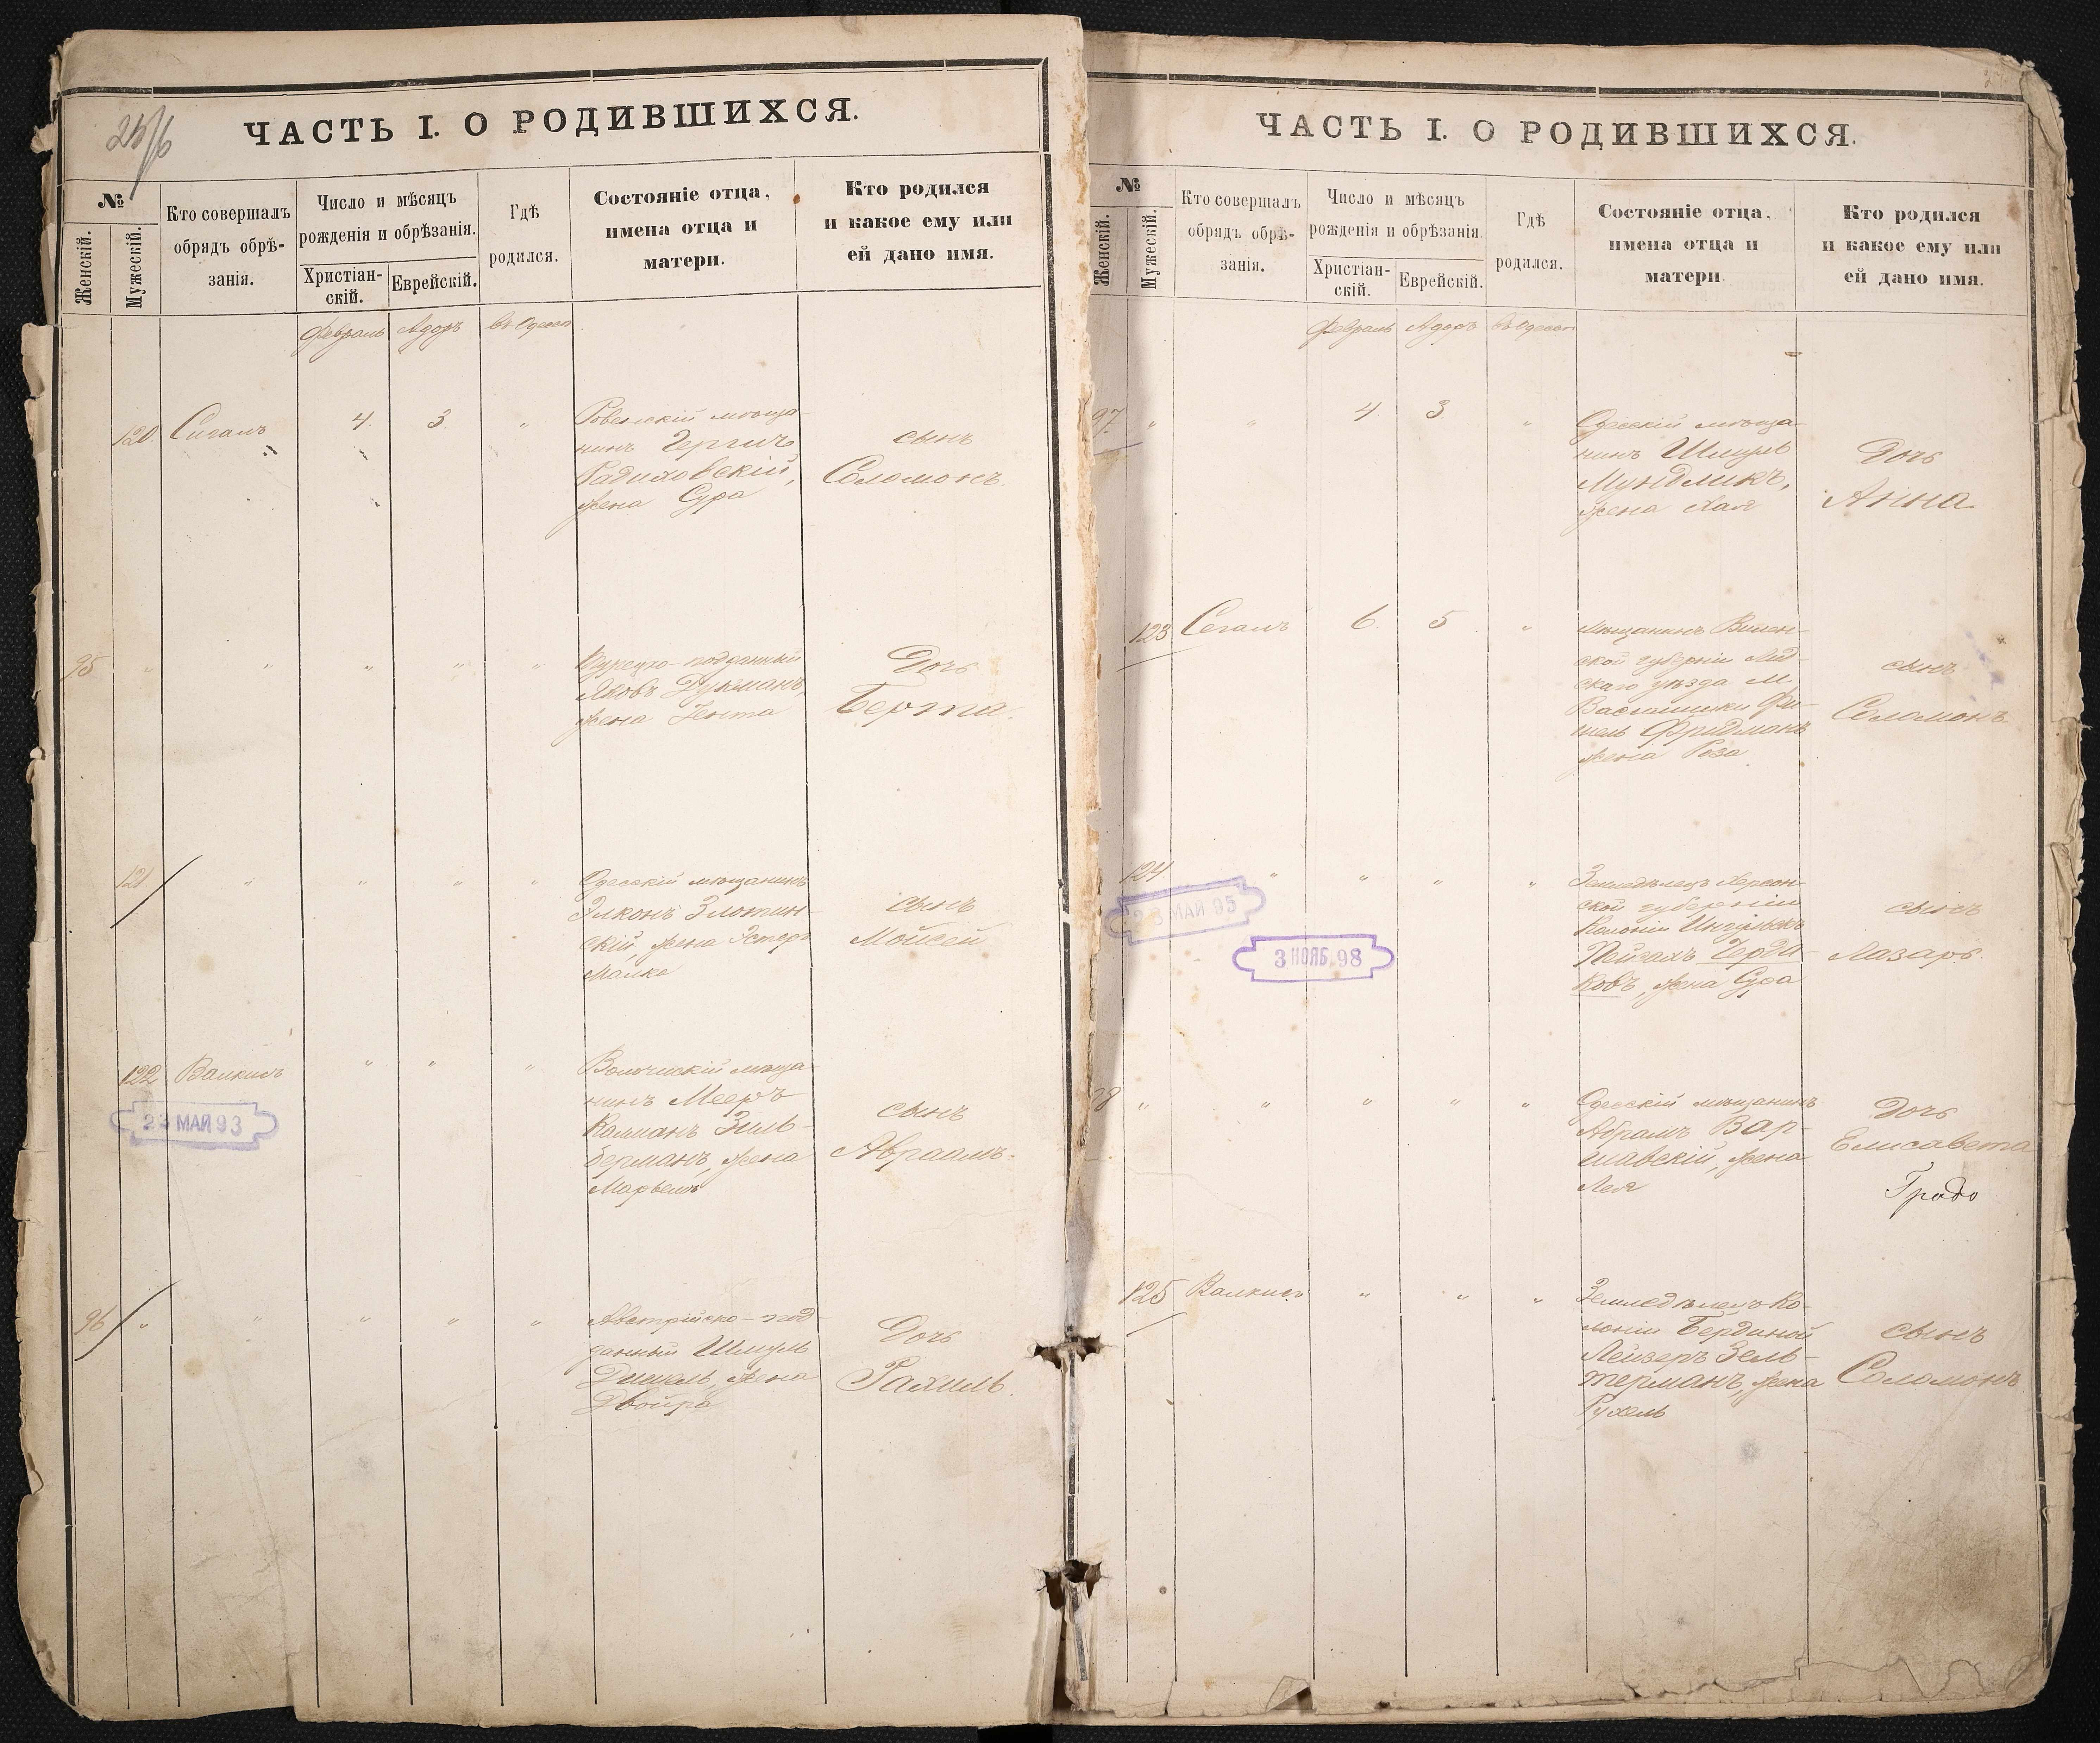 25/6
ЧАСТЬ I. О РОДИВШИХСЯ.
№
Женскій.
Мужескій.
Кто совершалъ
обрядъ обрѣ-
занія.
Число и мѣсяцъ
рожденія и обрѣзанія.
Христіан-
скій.
Еврейскій.
Гдѣ
родился.
Состояніе отца,
имена отца и
матери.
Кто родился
и какое ему или
ей дано имя.
Февраль Адоръ въ Одессѣ
120. Сигалъ 4. 3 "
Ровенскій мѣща-
нинъ Гершъ
Радиховскій,
жена Сура
сынъ
Соломонъ
95 " " " " "
Турецко-подданный
Яковъ Дукманъ,
жена Гента
Дочь
Берта.
121 " " " "
Одесскій мѣщанинъ
Элконъ Злотин-
скій, жена Эстеръ
Малке
сынъ
Мойсей
122 Валкисъ " " "
мѣща-
нинъ Мееръ
Калманъ Зиль-
берманъ, жена
Марьемъ
сынъ
Авраамъ.
23 МАЙ 93
96 " " " " " "
Австрійско-под-
данный Шмуль
жена
Двойра
Дочь
Рахиль.
ЧАСТЬ I. О РОДИВШИХСЯ.
№
Женскій.
Мужескій.
Кто совершалъ
обрядъ обрѣ-
занія.
Число и мѣсяцъ
рожденія и обрѣзанія.
Христіан-
скій.
Еврейскій.
Гдѣ
родился.
Состояніе отца,
имена отца и
матери.
Кто родился
и какое ему или
ей дано имя.
Февраль Адоръ въ Одессѣ
97 " " 4. 3 "
Одесскій мѣща-
нинъ Шмуль
Мундликъ,
жена Хая
Дочь
Анна
123 Сегалъ 6. 5 "
мѣщанинъ Вилен-
ской губерніи Лид-
скаго уѣзда м.
Василишки Фи-
шель Фридманъ
жена Роза
сынъ
Соломонъ.
124. " " " "
Земледѣлецъ Херсон-
ской губерніи
Колоніи Ингулецъ
Пейсахъ Герди-
ковъ, жена Сура
сынъ
Лазарь.
23 МАЙ 95
3 НОЯБ. 98
98 " " " " "
Одесскій мѣщанинъ
Абрамъ Вар-
шавскій, жена
Лея
Дочь
Елисавета
125 Валкисъ " " "
Земледѣлецъ Ко-
лоніи Бердиной
Лейзеръ Зель-
терманъ, жена
Рухель
сынъ
Соломонъ.